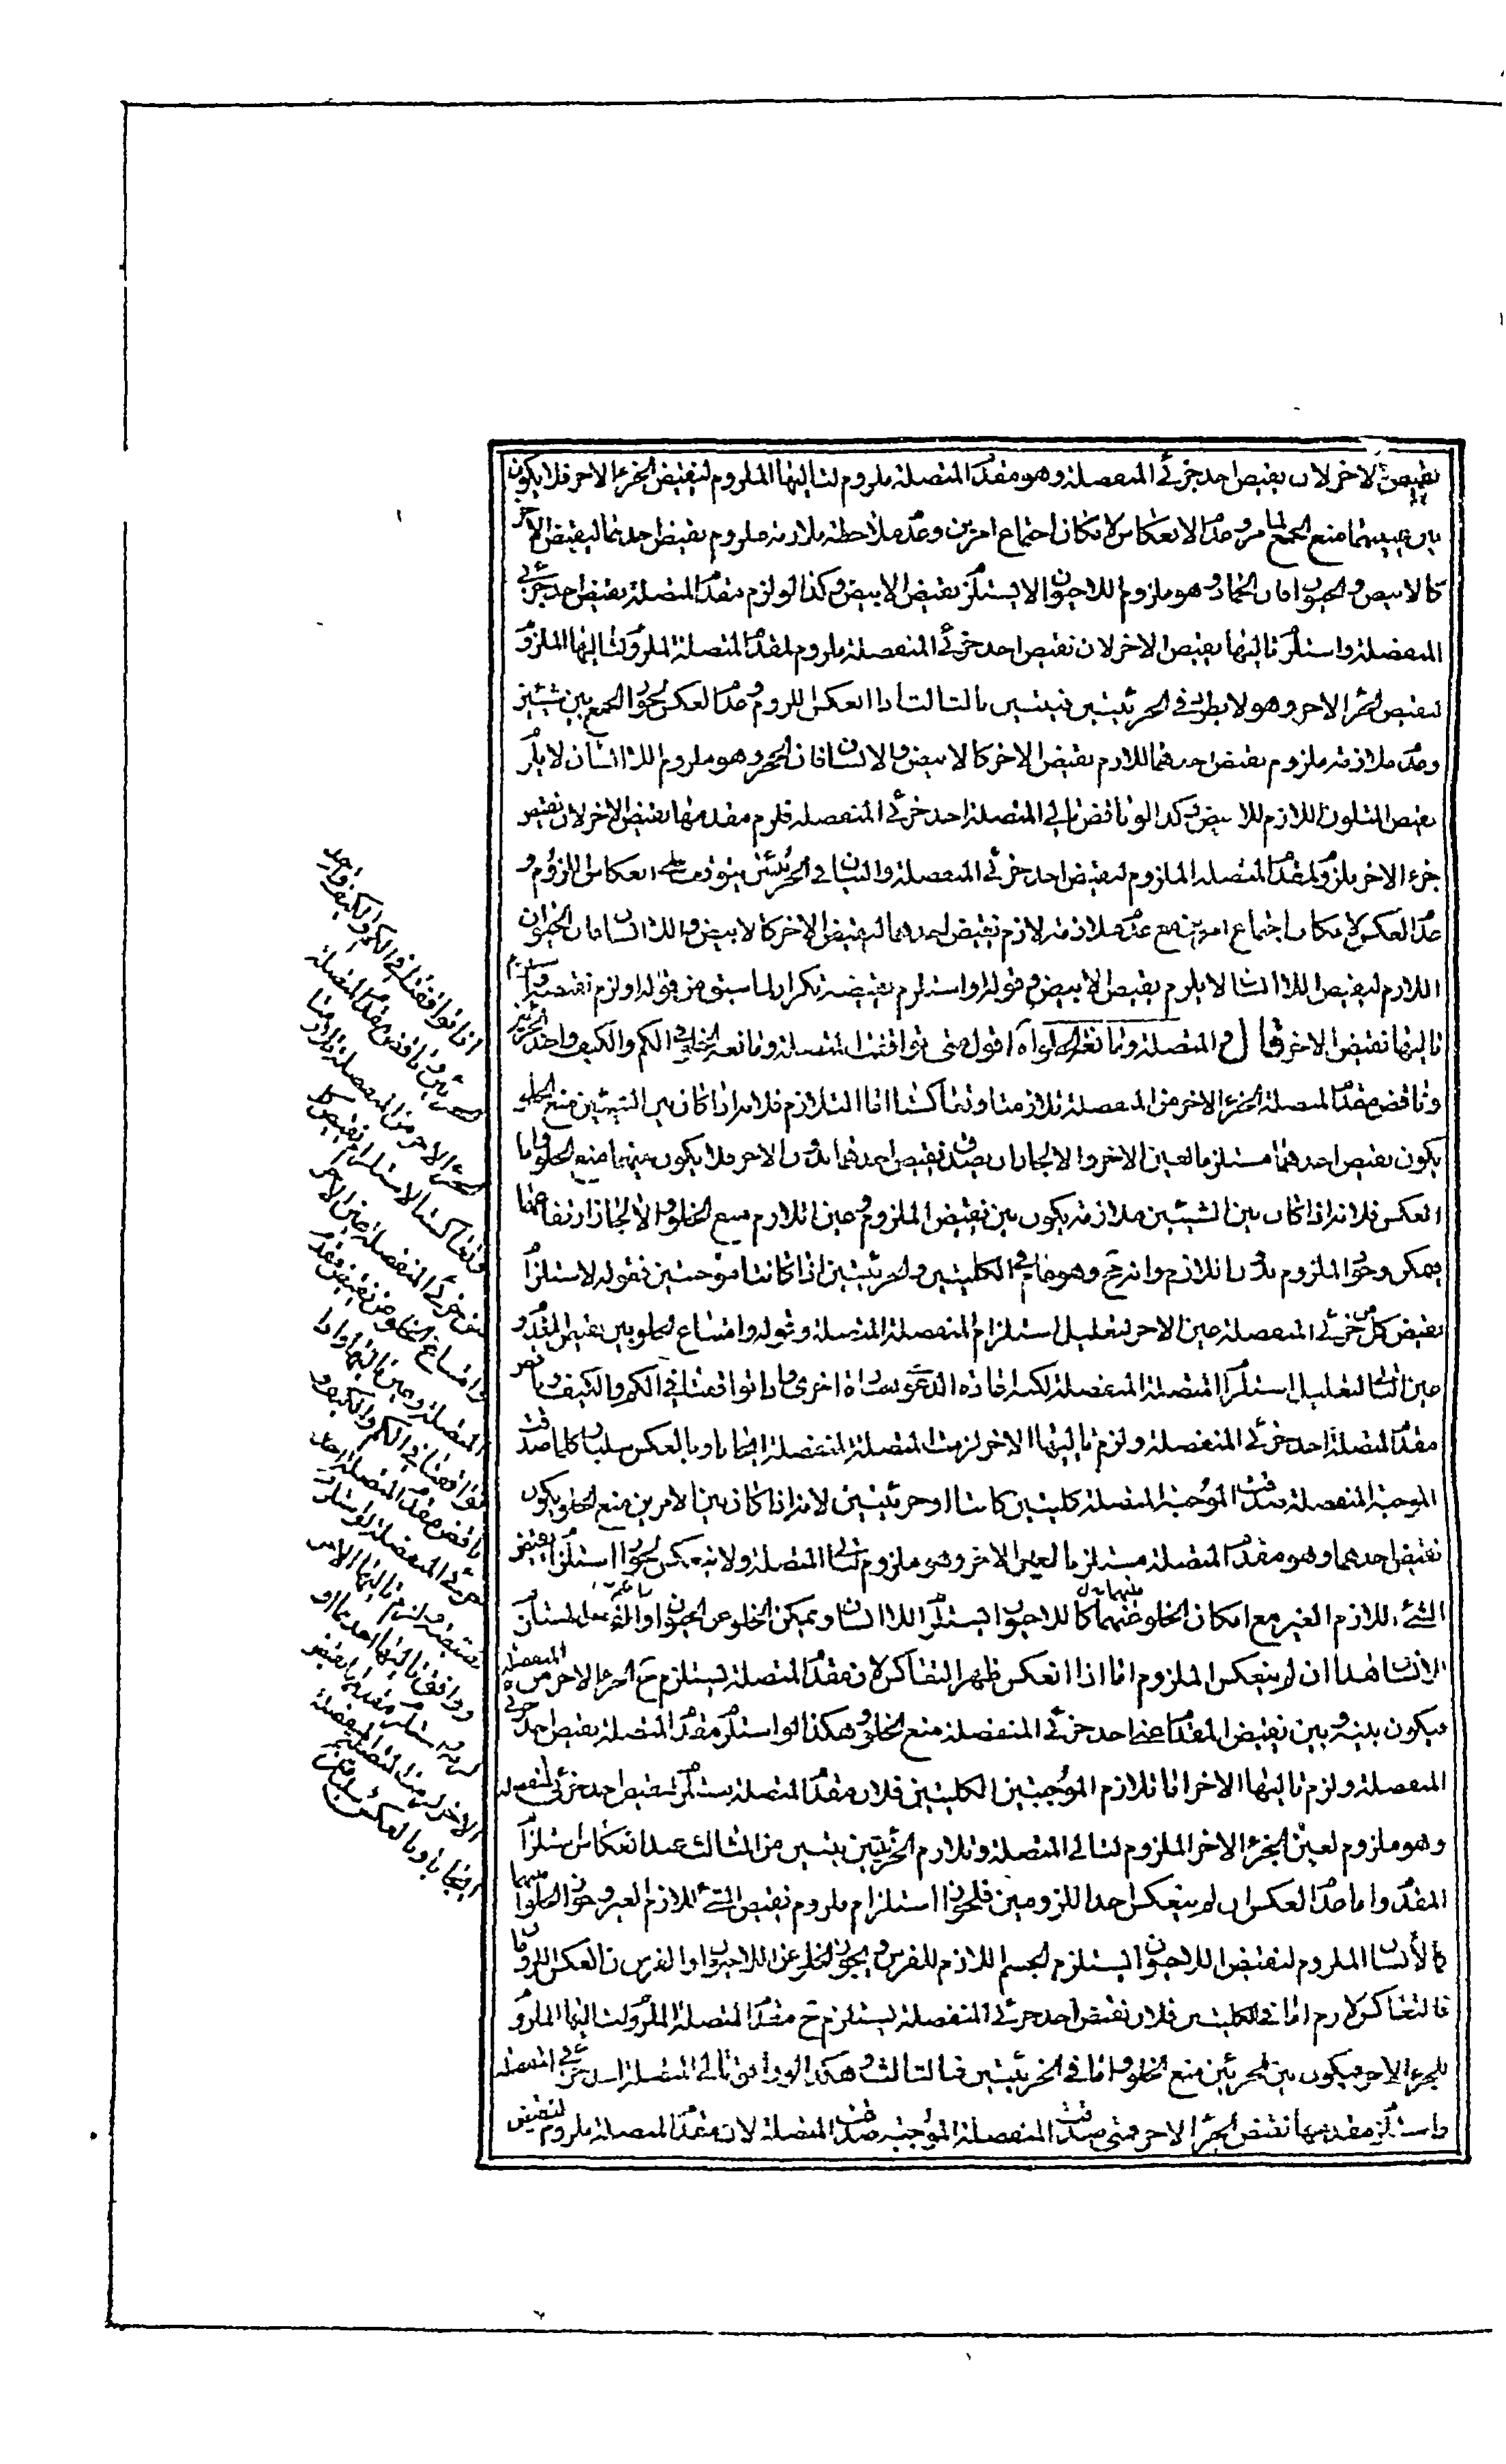 نقيض الاخر لان نقيض احد جزئي المنفصلة وهو مقدم المتصلة ملزوم لتاليها الملزوم لنقيض الجزء الاخر فلا يكون
بين عينيهما منع الجمع لما مر وعدم الانعكاس لامكان اجتماع امرين وعدم ملازمة ملزوم نقيض احدهما لنقيض الاخر
كالابيض والحيوان فان الجماد وهو ملزوم للاحيوان لا يستلزم نقيض الابيض وكذا لو لزم مقدم المتصلة نقيض احد جزئي
المنفصلة واستلزم تاليها نقيض الاخر لان نقيض احد جزئي المنفصلة ملزوم لمقدم المتصلة الملزوم لتاليها الملزوم
لنقيض الجزء الاخر وهو لا يطرد في الجزئيتين فيتبين بالثالث اذا انعكس اللزوم وعدم العكس لجواز الجمع بين شيئين
وعدم ملازمة ملزوم نقيض احدهما اللازم نقيض الاخر كالابيض والانسان فان الحجر وهو ملزوم اللاانسان لا يلزم
نقيض المتلون اللازم للابيض وكذا لو ناقض تالي المتصلة احد جزئي المنفصلة فلزم مقدمها نقيض الاخر لان نقيض
جزء الاخر ملزوم لمقدم المتصلة الملزوم لنقيض احد جزئي المنفصلة والبيان في الجزئيتين يتوقف على انعكاس اللزوم و
عدم العكس لامكان اجتماع امرين مع عدم ملازمة لازم نقيض احدهما لنقيض الاخر كالابيض واللاانسان فان الحيوان
اللازم لنقيض اللاانسان لا يلزم نقيض الابيض وقوله او استلزم نقيضه تكرار لما سبق من قوله او لزم نقيضه واستلزم
تاليها نقيض الاخر قال والمتصلة ومانعة الخلو اه اقول متى توافقت المتصلة ومانعة الخلو في الكم والكيف واحد الجزئين
وناقض مقدم المتصلة الجزء الاخر من المنفصلة تلازمتا وتعاكستا اما التلازم فلانه اذا كان بين الشيئين منع الخلو
يكون نقيض احدهما مستلزما لعين الاخر والا لجاز ان يصدق نقيض احدهما بدون الاخر فلا يكون بينهما منع الخلو واما
العكس فلانه اذا كان بين الشيئين ملازمة يكون بين نقيض الملزوم وعين اللازم منع الخلو والا لجاز ارتفاعهما
فيمكن وجود الملزوم بدون اللازم وانه مح وهو عام في الكليتين والجزئيتين اذا كانتا موجبتين فقوله لاستلزام
نقيض كل من جزئي المنفصلة عين الاخر لتعليل استلزام المنفصلة المتصلة وقوله وامتناع الخلو بين نقيض المقدم و
عين التالي لتعليل استلزام المتصلة المنفصلة لكنه اعاد الدعوى بعبارة اخرى واذا توافقتا في الكم والكيف وناقض
مقدم المتصلة احد جزئي المنفصلة ولزم تاليها الاخر لزمت المتصلة المنفصلة ايجابا وبالعكس سلبا وكلما صدقت
الموجبة المنفصلة صدقت الموجبة المتصلة كليتين كانتا او جزئيتين لانه اذا كان بين الامرين منع الخلو يكون
نقيض احدهما وهو مقدم المتصلة مستلزما لعين الاخر وهو ملزوم لتالي المتصلة ولا ينعكس لجواز استلزام نقيض
الشيء اللازم الغير مع امكان الخلو عنهما كاللاحيوان يستلزم اللاانسان ويمكن الخلو عن الحيوان والملزوم
الانسان هذا ان لم ينعكس الملزوم اما اذا انعكس ظهر التعاكس لان مقدم المتصلة يستلزم ح الجزء الاخر من المنفصلة
فيكون بينه وبين نقيض المقدم اعني احد جزئي المنفصلة منع الخلو وهكذا لو استلزم مقدم المتصلة نقيض احد جزئي
المنفصلة ولزم تاليها الاخر اما تلازم الموجبتين الكليتين فلان مقدم المتصلة يستلزم نقيض احد جزئي المنفصلة
وهو ملزوم لعين الجزء الاخر الملزوم لتالي المتصلة وتلازم الجزئيتين يتبين من الثالث عند انعكاس استلزام
المقدم واما عدم العكس ان لم ينعكس احد اللزومين فلجواز استلزام ملزوم نقيض الشيء اللازم الغير وجواز الخلو عنهما
كالانسان الملزوم لنقيض اللاحيوان يستلزم الجسم اللازم للفرس ويجوز الخلو عن اللاحيوان والفرس فان انعكس اللزومان
فالتعاكس لازم اما في الكليتين فلان نقيض احد جزئي المنفصلة يستلزم ح مقدم المتصلة الملزوم لتاليها الملزوم
للجزء الاخر فيكون بين الجزئين منع الخلو واما في الجزئيتين فبالثالث وهكذا لو وافق تالي المتصلة احد جزئي المنفصلة
واستلزم مقدمها نقيض الجزء الاخر فمتى صدقت المنفصلة الموجبة صدقت المتصلة لان مقدم المتصلة ملزوم لنقيض
اذا توافقتا في الكم والكيف واحد
الجزئين وناقض مقدم المتصلة
الجزء الاخر من المنفصلة تلازمتا
وتعاكستا لاستلزام نقيض كل
من جزئي المنفصلة عين الاخر
وامتناع الخلو عن نقيض مقدم
المتصلة وعين تاليها واذا
توافقتا في الكم والكيف و
ناقض مقدم المتصلة احد
جزئي المنفصلة او استلزم
نقيضه ولزم تاليها الاخر
او وافق تاليها احدهما و
استلزم مقدمها نقيض
الاخر لزمت المتصلة المنفصلة
ايجابا وبالعكس سلبا